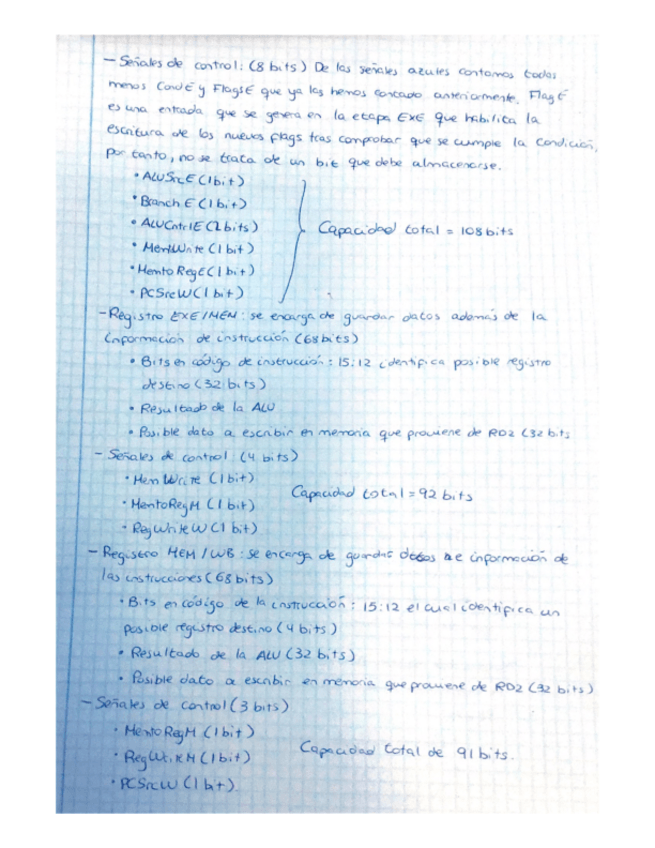 - Señales de control: (8 bits) De las señales azules contamos todas
menos CondE y FlagsE que ya las hemos contado anteriormente. FlagE
es una entrada que se genera en la etapa EXE que habilita la
escritura de los nuevos flags tras comprobar que se cumple la condición,
por tanto, no se trata de un bit que debe almacenarse.
• ALUSrcE (1 bit)
• Branch E (1 bit)
• ALUCntrlE (2 bits)
Capacidad total = 108 bits
• MemWrite (1 bit)
• Memto RegE (1 bit)
• PCSrcW (1 bit)
- Registro EXE/MEM: se encarga de guardar datos además de la
información de instrucción (68 bits)
• Bits en código de instrucción: 15:12 identifica posible registro
destino (32 bits)
• Resultado de la ALU
• Posible dato a escribir en memoria que proviene de RD2 (32 bits
- Señales de control (4 bits)
• Mem Write (1 bit)
Capacidad total = 92 bits
• MemtoRegM (1 bit)
• RegWriteW (1 bit)
- Registro MEM / WB: se encarga de guardar datos de información de
las instrucciones (68 bits)
• Bits en código de la instrucción: 15:12 el cual identifica un
posible registro destino (4 bits)
• Resultado de la ALU (32 bits)
• Posible dato a escribir en memoria que proviene de RD2 (32 bits)
- Señales de control (3 bits)
• MemtoRegM (1 bit)
Capacidad total de 91 bits.
• RegWriteM (1 bit)
• PCSrcW (1 bit).